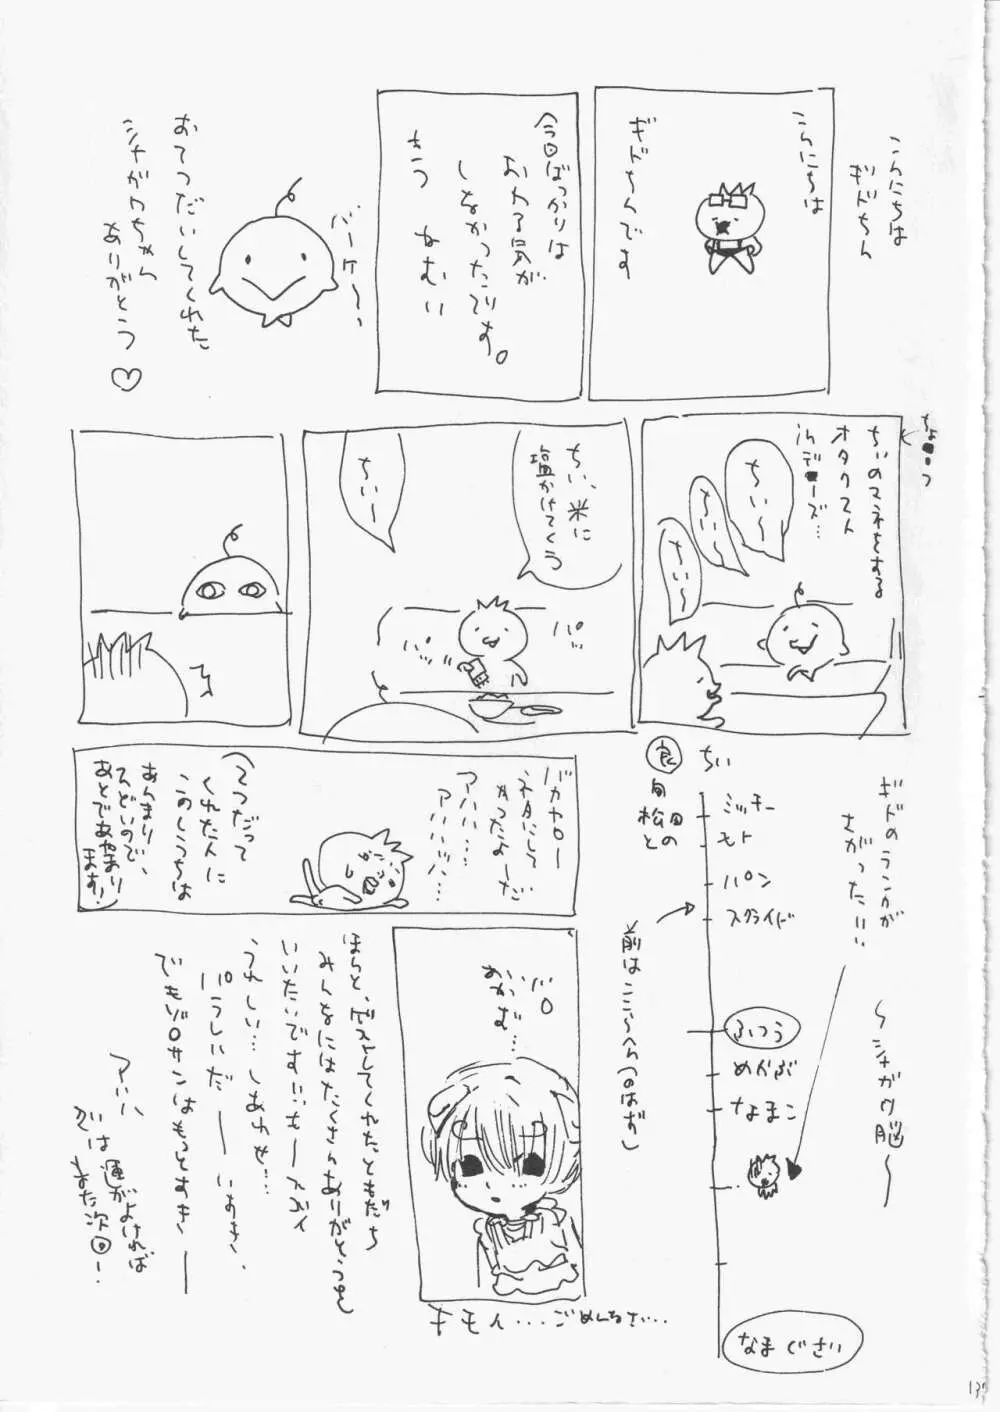 こんにちは
ギドちん
こんにちは
ギドちんです
今回ばっかりは
おわる気が
しなかったです。
もう ねむい
バーケ〜、
おてつだいしてくれた
シャガワちゃん
ありがとう♡
ちぃのマネをする
オタクマスト
ちぃ〜
ちぃ〜
ちぃ〜
ちぃ、米に
塩かけてくう
ちぃー
パッ
パッ
バカヤロー
ネタにして
やったよーだ
アハハ…
アハハハッハ…
(てつだって
くれた人に
このしうちは
あんまり
ひどいので、
あとであやまり
ます!)
ギドのランクが
さがった!!!
〜シャガワ脳〜
ちぃ
ミッチー
モト
パン
スクライド
ふつう
めかぶ
なまこ
なまぐさい
良
松田との
前はここらへん(のはず)
おかず…
キモイ…ごめんなさい…
ほらと、ゲストしてくれたともだち
みんなにはたくさんありがとうを
いいたいです!!
うれしい…しあわせ…
アハハ
では運がよければ
また次回ー!